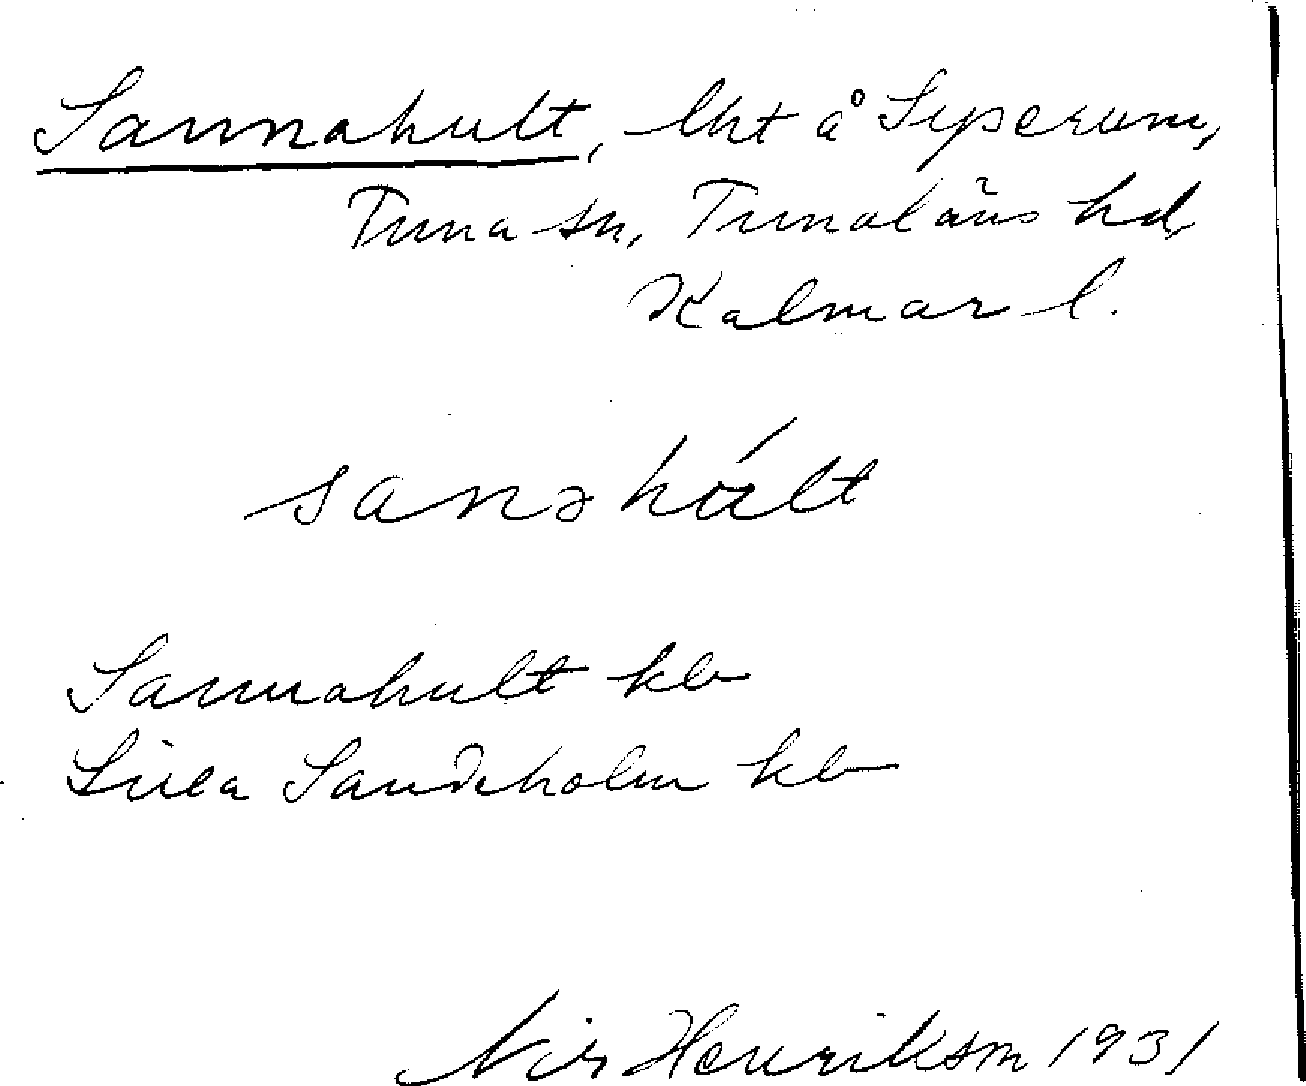 Sannahult, lht å Syserum,
Tuna sn, Tunaläns hd,
Kalmar l.
sanəhúlt
Sannahult kb
Lilla Sandholm kb
Henriksson 1931